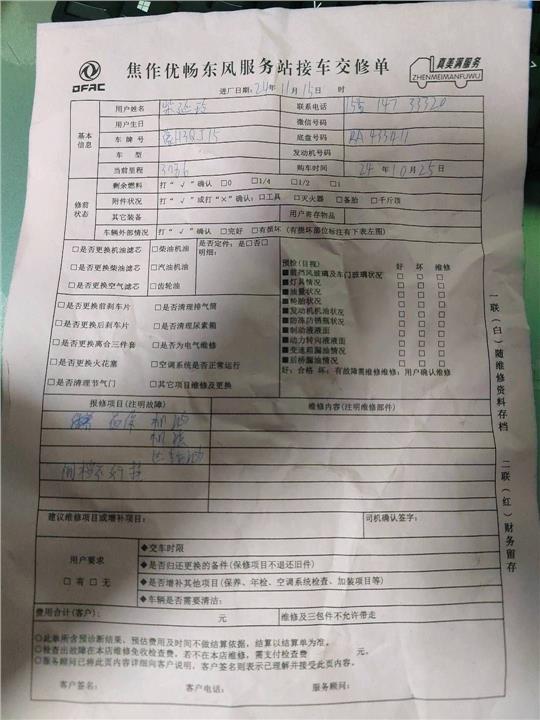 DFAC
焦作优畅东风服务站接车交修单
真美满服务
ZHENMEIMANFUWU
进厂日期：24年11月15日 时
基本信息
用户姓名 联系电话
用户生日 微信号码
车牌号 底盘号码
车型 发动机号码
当前里程 购车时间 24年10月25日
修前状态
剩余燃料 打“√”确认 □0 □1/4 □1/2 □1
附件状况 打“√”或打“×”确认：□工具 □灭火器 □备胎 □千斤顶
其它装备 用户寄存物品
车辆外部情况 打“√”确认 □完好 □有损坏（有损坏部位标注有下表左图）
□是否更换机油滤芯 □柴油机油
□是否更换柴油滤芯 □汽油机油
□是否更换空气滤芯 □齿轮油
是否定件：是□否□
明细：
□是否更换前刹车片 □是否清理排气筒
□是否更换后刹车片 □是否清理尿素箱
□是否更换离合三件套 □是否为电气维修
□是否更换火花塞 □空调系统是否正常运行
□是否清理节气门 □其它项目维修及更换
预检（目视） 好 坏 维修
■前挡风玻璃及车门玻璃状况 □ □ □
■灯具情况 □ □ □
■油量状况 □ □ □
■轮胎状况 □ □ □
■发动机机油状况 □ □ □
■防冻防锈瓶状况 □ □ □
■制动液液面 □ □ □
■动力转向液液面 □ □ □
■变速箱漏油情况 □ □ □
■后桥漏油情况 □ □ □
好：合格 坏：有故障需维修维修：用户确认维修
报修项目（注明故障） 维修内容（注明维修部件）
机油
建议维修项目或增补项目： 司机确认签字：
用户要求
□有 □无
◆交车时限
◆是否归还更换的备件（保修项目不退还旧件）
◆是否增补其他项目（保养、年检、空调系统检查、加装项目等）
◆车辆是否需要清洁：
费用合计（客户）： 元 维修及三包件不允许带走
○此单所含预诊断结果、预估费用及时间不做结算依据，结算以结算单为准。
○检查出故障在本店维修免收检查费，若不在本店维修，需支付检查费 元。
○服务顾问已将此页内容详细向客户说明，客户签名则表示已理解并接受此页内容。
客户签名： 客户电话： 服务顾问：
一联（白）随维修资料存档
二联（红）财务留存